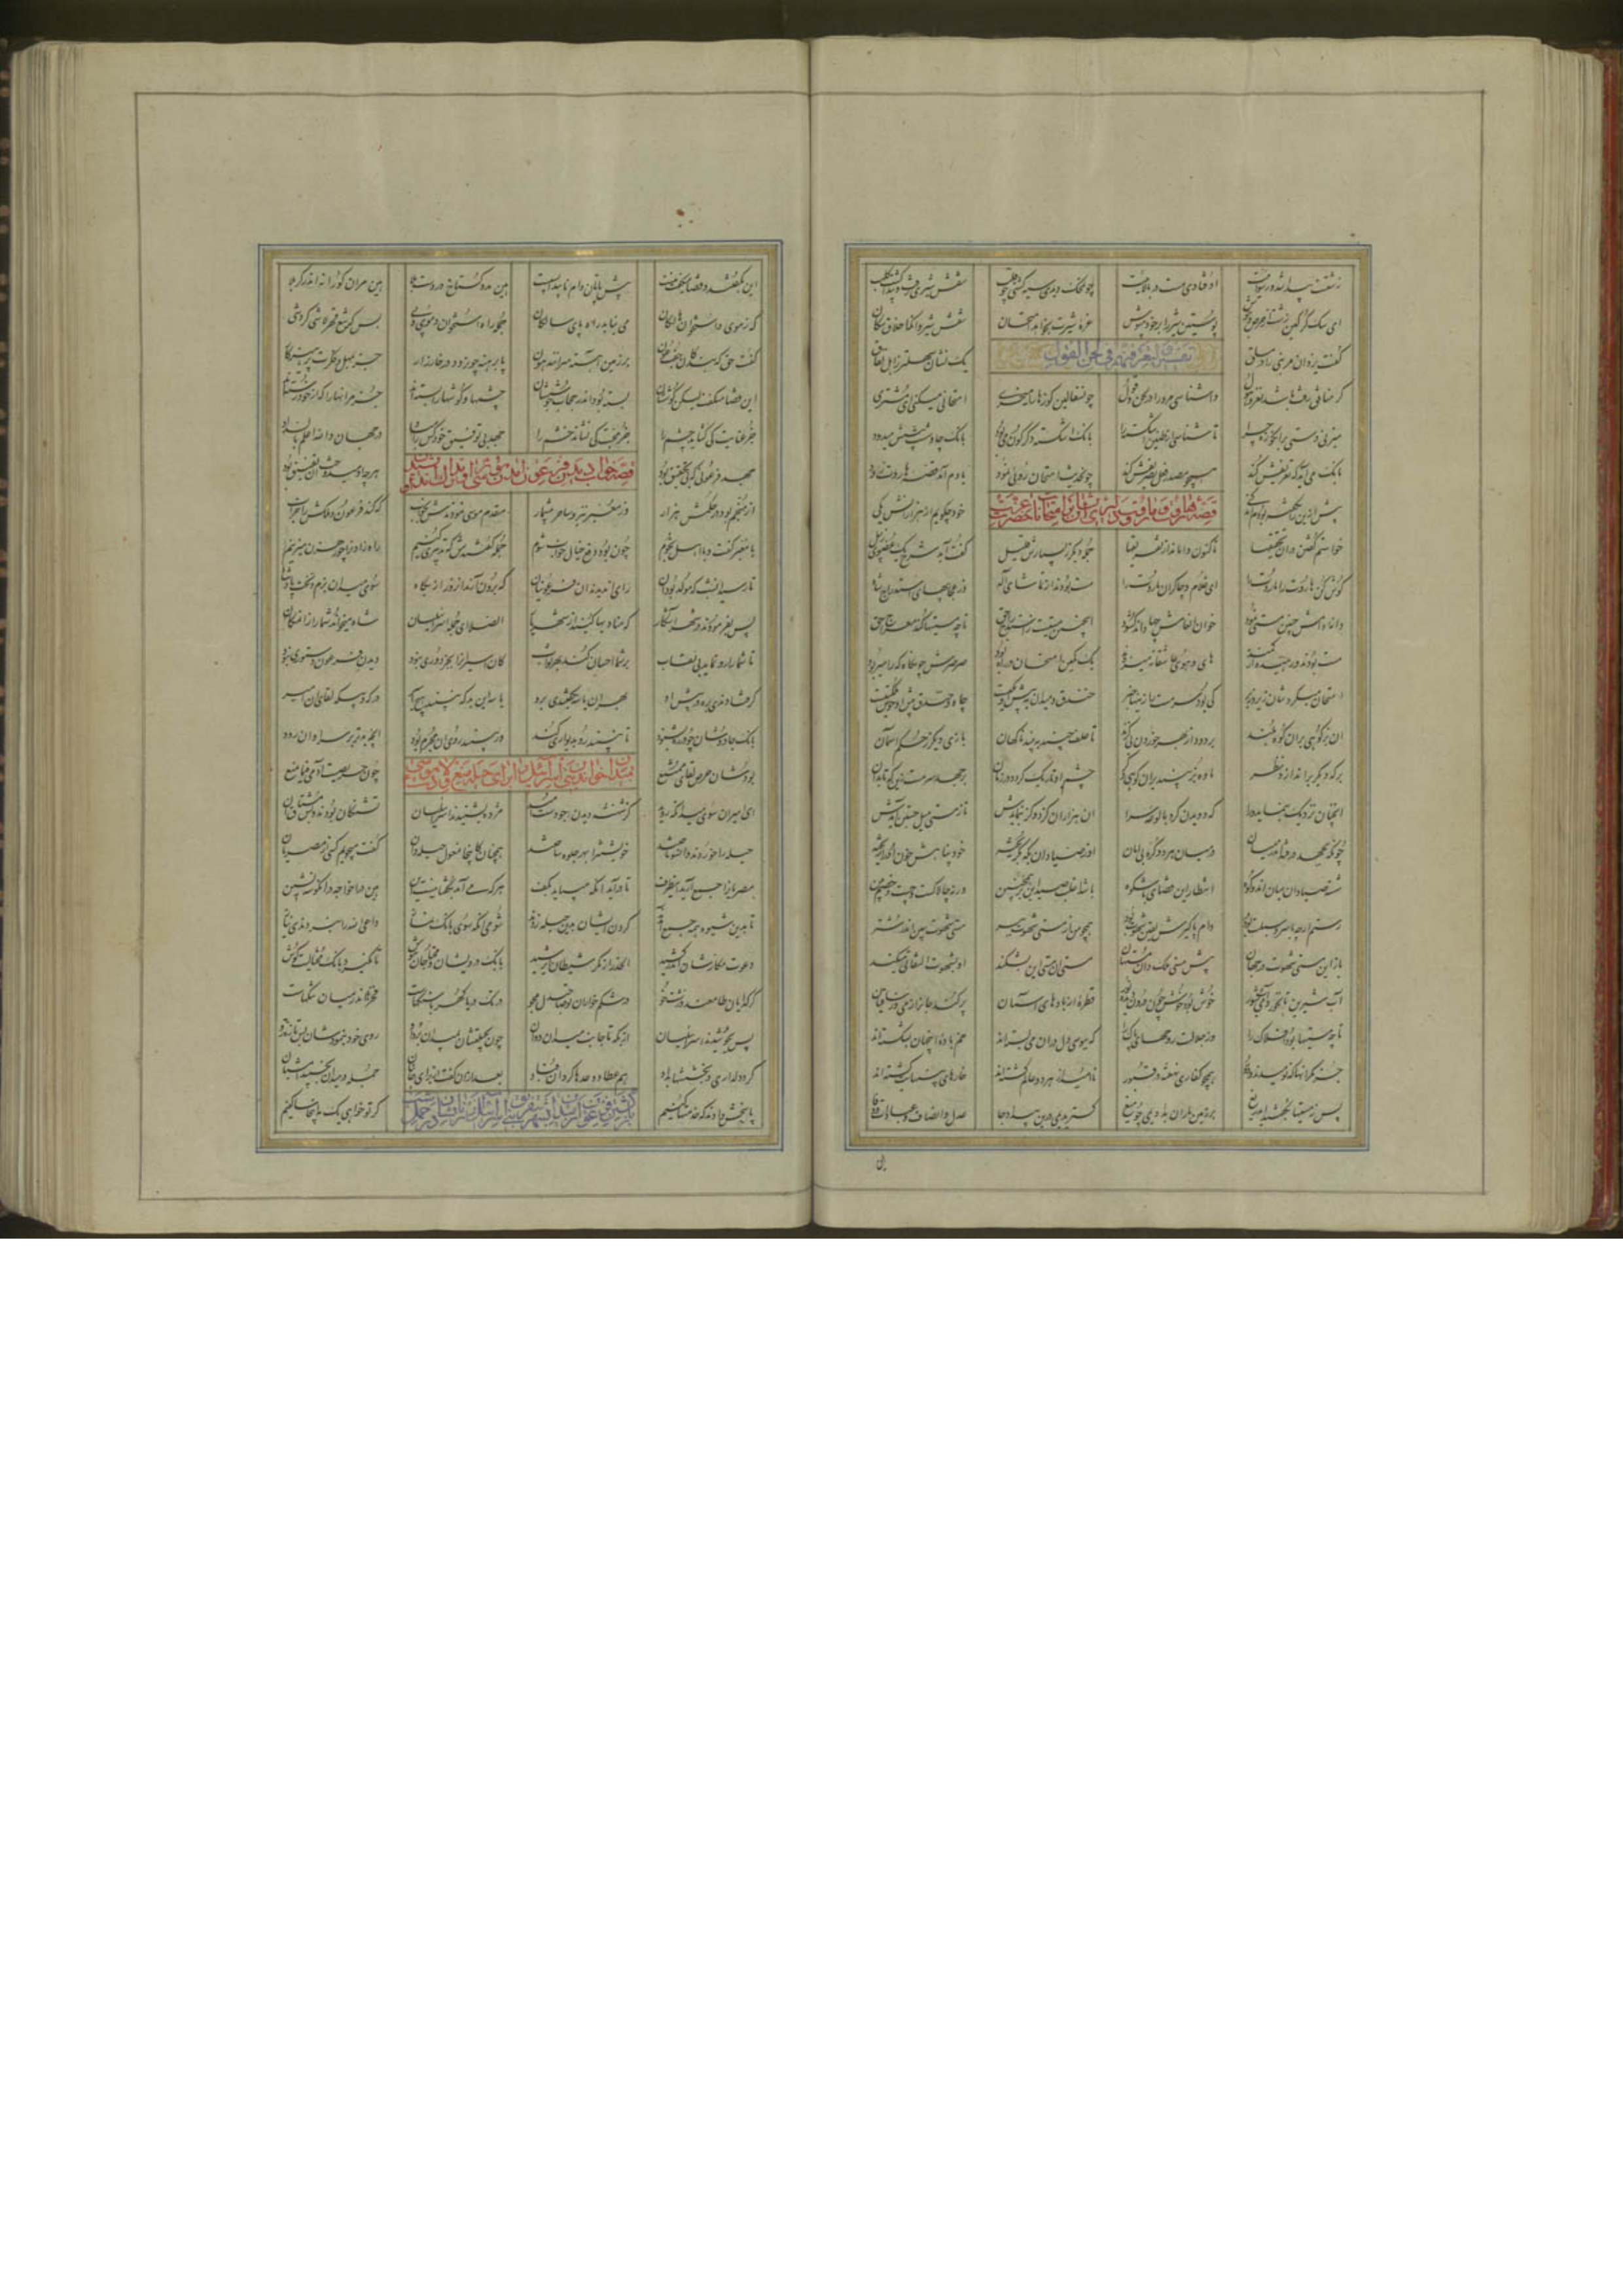 زشت پیدا شد چون محک دیدی سیه گشتی چو قلب نقش شیری رفت و پیدا گشت کلب
ای سگ گرگین زشت از حرص و جوش پوستین شیر را بر خود مپوش غره شیرت بخواهد امتحان نقش شیر و آنگه اخلاق سگان
تفسیر و لتعرفنهم فی لحن القول
گفت یزدان مر نبی را در مساق یک نشان سهلتر ز اهل نفاق
گر منافق زفت باشد نغز و هول واشناسی مر ورا در لحن و قول چون سفالین کوزها را میخری امتحانی میکنی ای مشتری
میزنی دستی بر آن کوزه چرا تا شناسی از طنین اشکسته را بانگ اشکسته دگرگون می بود بانگ چاوشست پیشش میرود
بانگ می آید که تعریفش کند همچو مصدر فعل تصریفش کند چون حدیث امتحان رویی نمود یادم آمد قصه هاروت زود
قصه هاروت و ماروت و دلیری ایشان بر امتحانات حضرت عزت
پیش ازین زان گفته بودیم اندکی خود چگویم از هزارانش یکی
خواستم گفتن در آن تحقیقها تاکنون واماند از تعویقها حمله دیگر ز بسیارش قلیل گفته آید شرح یک عضوی ز پیل
گوش کن هاروت را ماروت را ای غلام و چاکران ماروت را مست بودند از تماشای اله وز عجایبهای استدراج شاه
دانه دامش چنین مستی نمود خوان انعامش چها داند گشود اینچنین مستیست ز استدراج حق تا چه مستیها کند معراج حق
مست بودند و رهیده از کمند های و هوی عاشقانه میزدند یک کمین و امتحان در راه بود صرصرش چون کاه که را میربود
امتحان میکردشان زیر و زبر کی بود سرمست را زینها خبر خندق و میدان به پیش او یکیست چاه و خندق پیش او خوش مسلکیست
آن بز کوهی بران کوه بلند بر دود از بهر خوردن بی گزند تا علف چیند ببیند ناگهان بازی دیگر ز حکم آسمان
بر که دیگر بر اندازد نظر ماده بز بیند بران کوه دگر چشم او تاریک گردد در زمان برجهد سرمست زین که تا بدان
آنچنان نزدیک بنماید ورا که دویدن گرد بالوعه سرا آن هزاران گز دو گز بنمایدش تا ز مستی میل جستن آیدش
چونکه بجهد در فتد اندر میان در میان هر دو کوه بی امان او ز صیادان بکه بگریخته خود پناهش خون او را ریخته
شسته صیادان میان آن دو کوه انتظار این قضای باشکوه باشد اغلب صید این بز همچنین ورنه چالاکست و چست و خصم بین
رستم ارچه با سر و سبلت بود دام پاگیرش یقین شهوت بود همچو من از مستی شهوت ببر مستی شهوت ببین اندر شتر
باز این مستی شهوت در جهان پیش مستی ملک دان مستهان مستی آن مستی این بشکند او بشهوت التفاتی کی کند
آب شیرین تا نخوردی آب شور خوش بود خوش چون درون دیده نور قطره از بادهای آسمان برکند جانرا ز می وز ساقیان
تا چه مستیها بود املاک را وز جلالت روحهای پاک را که ببویی دل دران می بسته اند خم باده این جهان بشکسته اند
جز مگر آنها که نومیدند و دور همچو کفاری نهفته در قبور ناامید از هر دو عالم گشته اند خارهای بی نهایت کشته اند
پس ز مستیها بگفتند ای دریغ بر زمین باران بدادیمی چو میغ گستریدیمی درین بیداد جا عدل و انصاف و عبادات و وفا
این بگفتند و قضا میگفت بیست پیش پاتان دام ناپیدا بسیست هین مدو گستاخ در دشت بلا هین مران کورانه اندر کربلا
که ز موی و استخوان هالکان می نیابد راه پای سالکان جمله راه استخوان و موی و پی بس که تیغ قهر لاشی کرد شی
گفت حق که بندگان جفت عون بر زمین آهسته میرانند و هون پا برهنه چون رود در خارزار جز بمهل و فکرت پرهیزگار
این قضا میگفت لیکن گوششان بسته بود اندر حجاب جوششان چشمها و گوشها را بسته اند جز مر آنها را که از خود رسته اند
جز عنایت کی گشاید چشم را جز محبت کی نشاند خشم را جهد بی توفیق خود کس را مباد در جهان والله اعلم بالسداد
قصه خواب دیدن فرعون آمدن موسی را و تدارک اندیشیدن
جهد فرعونی که بی توفیق بود هرچه او میدوخت آن تفتیق بود
از منجم بود در حکمش هزار وز معبر نیز و ساحر بیشمار مقدم موسی نمودندش بخواب که کند فرعون و ملکش را خراب
با معبر گفت و با اهل نجوم چون بود دفع خیال و خواب شوم جمله گفتندش که تدبیری کنیم راه زادن را چو رهزن میزنیم
تا رسید آن شب که مولد بود آن رای آن دیدند آن فرعونیان که برون آرند آن روز از پگاه سوی میدان بزم و تخت پادشاه
پس بفرمودند در شهر آشکار که منادیها کنند از شهریار الصلا ای جمله اسرائیلیان شاه میخواند شما را زان مکان
تا شما را رو نماید بی نقاب بر شما احسان کند بهر ثواب کان اسیران را بجز دوری نبود دیدن فرعون دستوری نبود
گر فتادندی بره در پیش او بهر آن یاسه بخفتندی برو یاسه این بد که نبیند هیچ اسیر درگه و بیگه لقای آن امیر
بانگ چاوشان چو در ره بشنود تا نبیند رو بدیواری کند ور ببیند روی او مجرم بود آنچه بدتر بر سر او آن رود
بودشان حرص لقای ممتنع چون حریصست آدمی فیما منع
بمیدان خواندن بنی اسرائیل را برای حیله منع ولادت موسی
ای اسیران سوی میدانگه روید کز شهنشه دیدن و جودست امید مژده بشنیدند اسرائیلیان تشنگان بودند و بس مشتاق آن
حیله را خوردند و آنسو تاختند خویشتن را بهر جلوه ساختند همچنان کاینجا مغول حیله دان گفت میجویم کسی از مصریان
مصریانرا جمع آرید اینطرف تا در آید آنکه میباید بکف هرکه می آمد بگفتا نیست این هین درا خواجه دران گوشه نشین
تا بدین شیوه همه جمع آمدند گردن ایشان بدین حیله زدند شومی آنکه سوی بانگ نماز داعی الله را نبردندی نیاز
دعوت مکارشان اندر کشید الحذر از مکر شیطان ای رشید بانگ درویشان و محتاجان نیوش تا نگیرد بانگ محتالیت گوش
گر گدایان طامعند و زشتخو در شکم خواران تو صاحبدل بجو در تک دریا گهر با سنگهاست فخرها اندر میان ننگهاست
پس بجوشیدند اسرائیلیان از پگه تا جانب میدان دوان چون بحیلتشان بمیدان برد او روی خود بنمودشان بس تازه رو
کرد دلداری و بخششها بداد هم عطا هم وعدها کرد آن قباد بعد ازان گفت از برای جانتان جمله در میدان بخسپید امشبان
پاسخش دادند که خدمت کنیم گر تو خواهی یک مه اینجا ساکنیم
بازگشتن فرعون از میدان بشهر بتفریق بنی اسرائیل از زنانشان در شب حمل